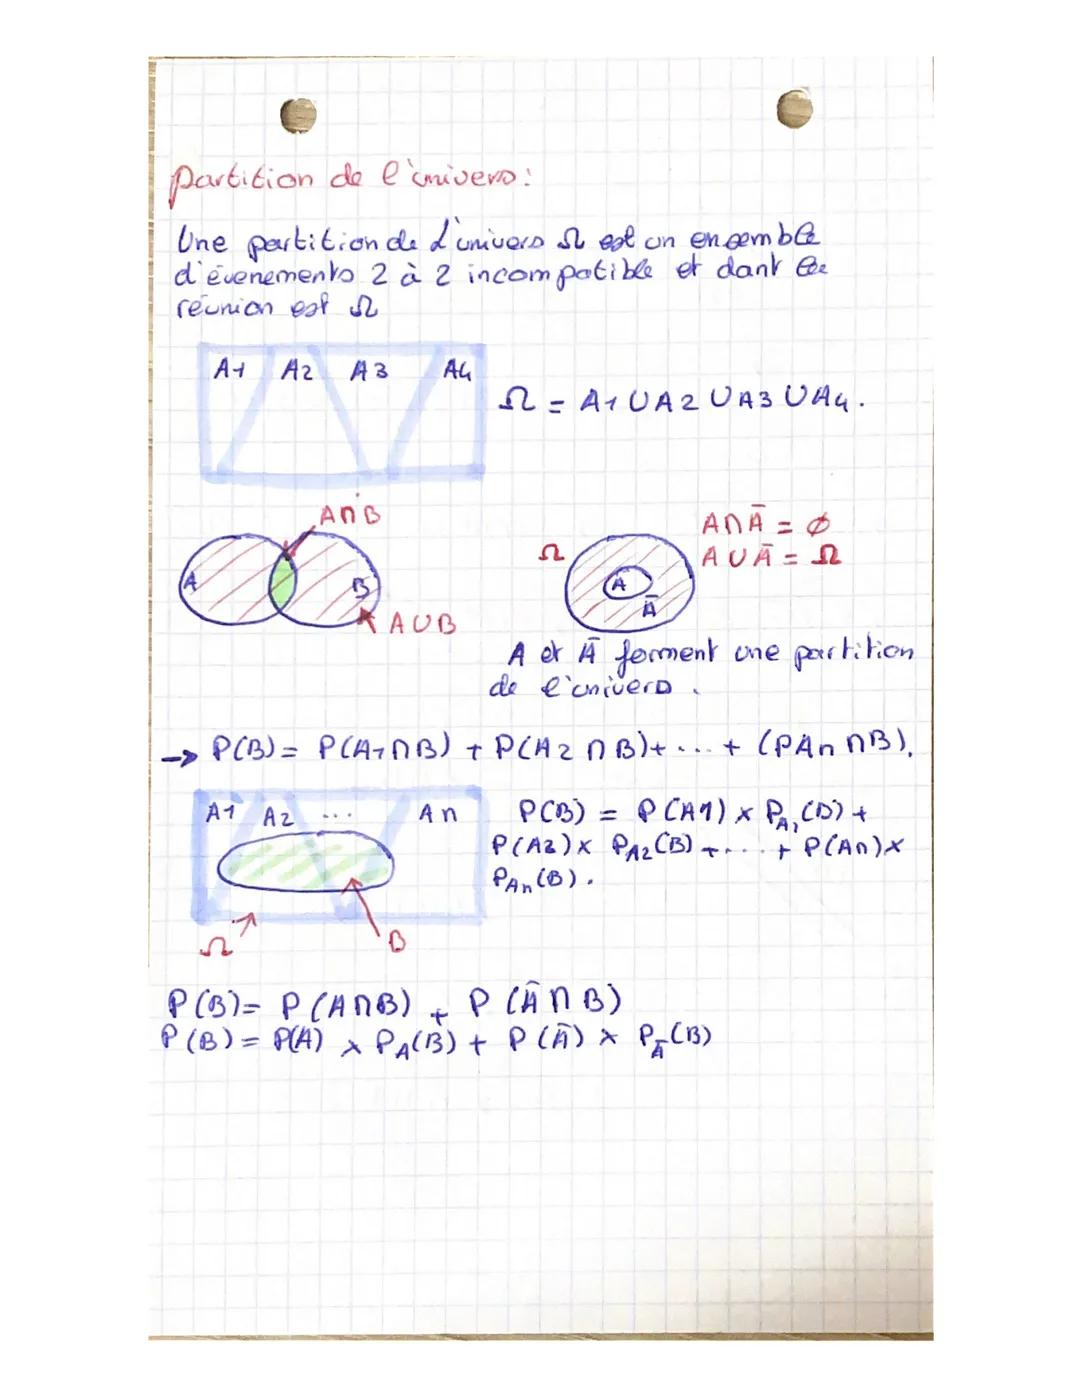 partition de l'univers :
Une partition de l'univers Ω est un ensemble
d'évenements 2 à 2 incompatible et dant le
réunion est Ω
A1 A2 A3 A4
Ω = A1 ∪ A2 ∪ A3 ∪ A4.
A∩B
A B
A∪B
Ω
A
Ā
A∩Ā = ∅
A∪Ā = Ω
A et Ā forment une partition
de l'univers.
→ P(B) = P(A1∩B) + P(A2∩B)+ ... + (PAn∩B).
A1 A2 ... An
Ω
B
P(B) = P(A1) × P_A1(B) +
P(A2)× P_A2(B) + .... + P(An)×
P_An(B).
P(B)= P(A∩B) + P(Ā∩B)
P(B) = P(A) × P_A(B) + P(Ā) × P_Ā(B)